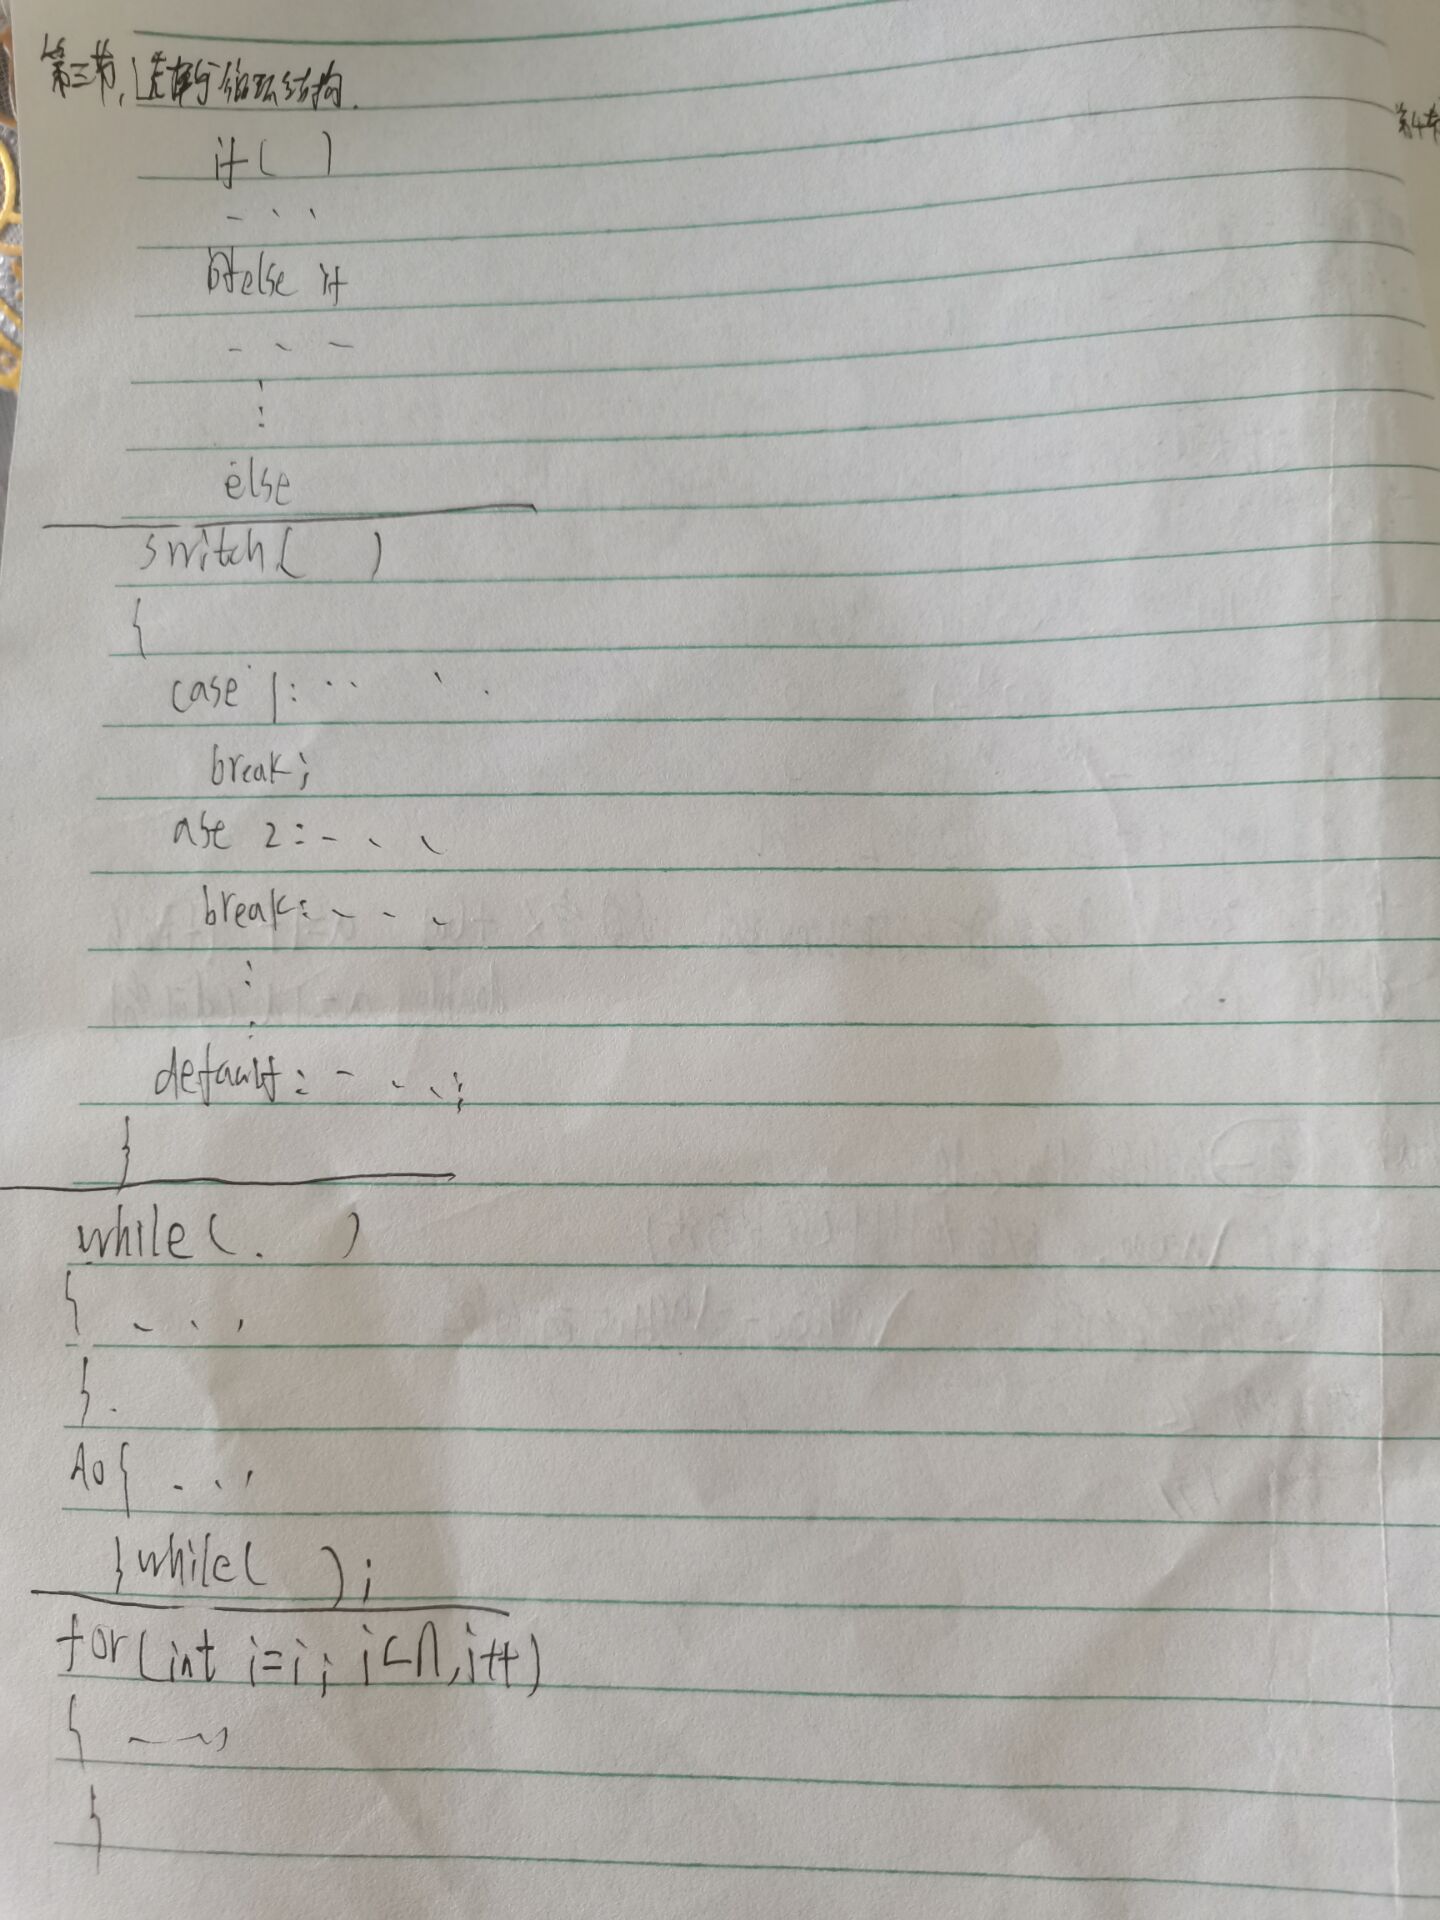 第三节,选择与循环结构.
第4节
if( )
...
else if
...
⋮
else
switch( )
{
case 1: ....
break;
ase 2: ...
break: ...
⋮
default: ...;
}
while(. )
{ ...
}.
do{ ...
}while( );
for(int i=i; i<n,i++)
{ ...
}